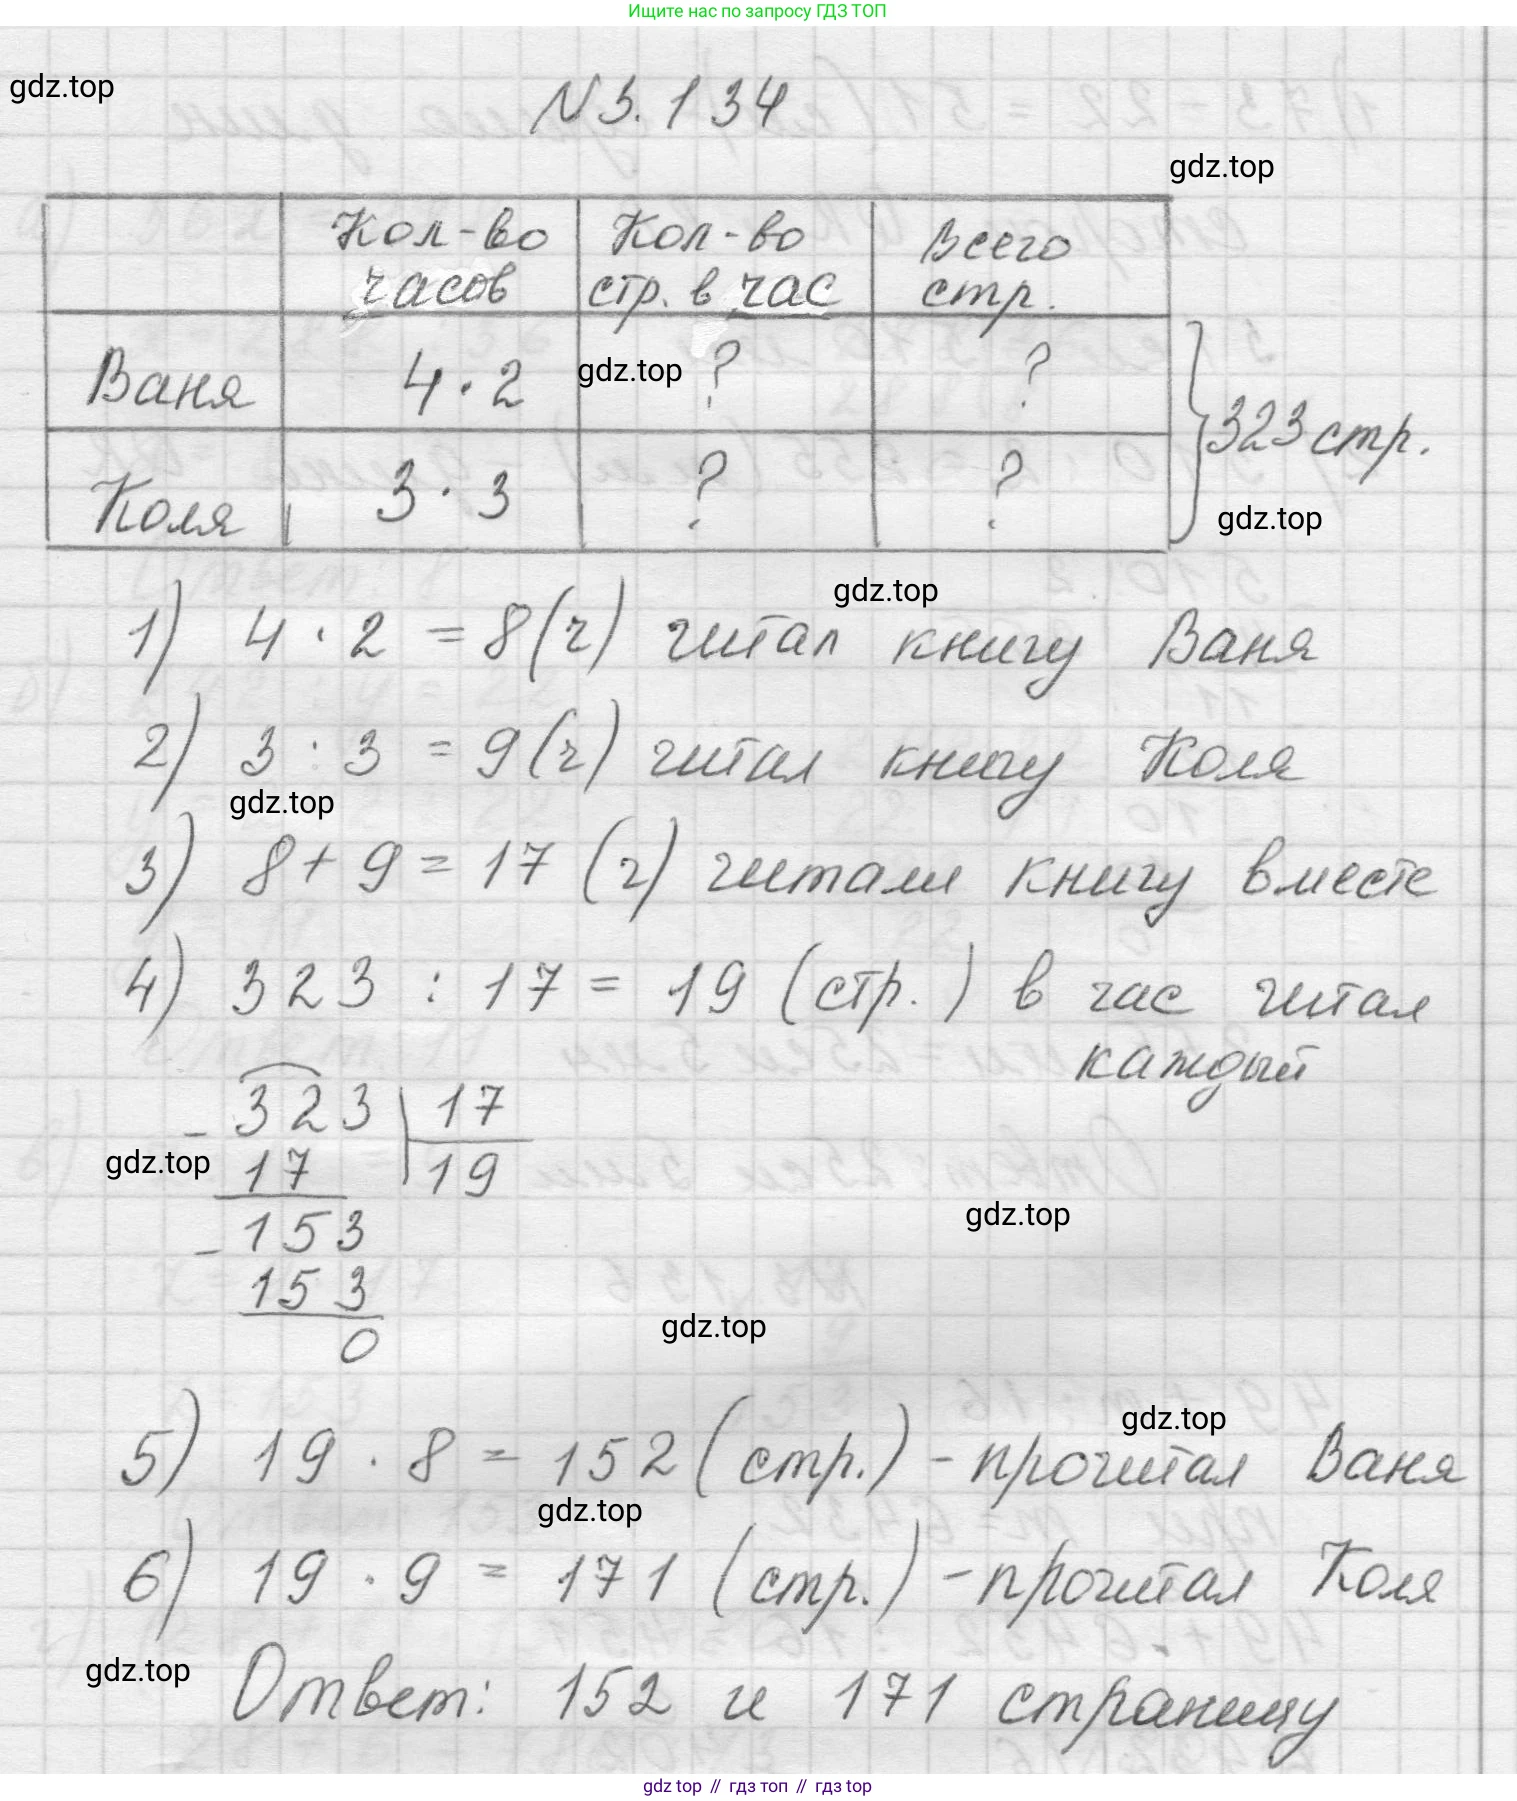 Ищите нас по запросу ГДЗ ТОП
gdz.top
N3.134
gdz.top
Кол-во Кол-во Всего
часов стр. в час стр.
Ваня 4·2 gdz.top ? ?
323 стр.
Коля 3·3 ? ?
gdz.top
gdz.top
1) 4·2 = 8(ч) читал книгу Ваня
2) 3:3 = 9(ч) читал книгу Коля
gdz.top
3) 8+9=17 (ч) читали книгу вместе
4) 323 : 17 = 19 (стр.) в час читал
каждый
-323 17
gdz.top 17 19
-153
153
0
gdz.top
gdz.top
gdz.top
5) 19·8 = 152 (стр.) - прочитал Ваня
gdz.top
6) 19·9 = 171 (стр.) - прочитал Коля
gdz.top
Ответ: 152 и 171 страницу
gdz top // гдз топ // гдз top